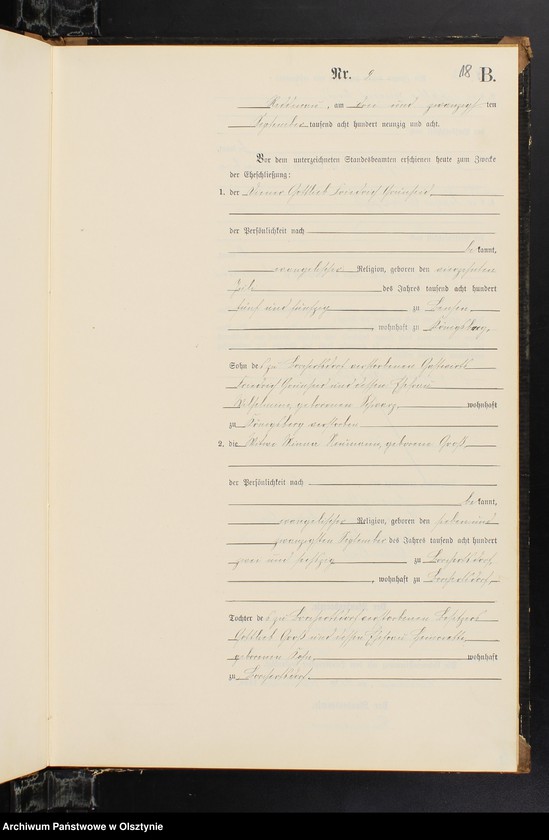 Nr. 2
18 B.
, am drei und zwanzigsten
September tausend acht hundert neunzig und acht.
Vor dem unterzeichneten Standesbeamten erschienen heute zum Zwecke
der Eheschließung:
1. der Diener Gottlieb Friedrich
der Persönlichkeit nach
be kannt,
evangelischer Religion, geboren den vierzehnten
Juli des Jahres tausend acht hundert
fünf und fünfzig zu
, wohnhaft zu Königsberg,
Sohn des zu verstorbenen
Friedrich und dessen Ehefrau
Wilhelmine, geborenen Schwarz, wohnhaft
zu Königsberg verstorben
2. die Witwe Neumann, geborene Groß,
der Persönlichkeit nach
be kannt,
evangelischer Religion, geboren den sieben und
zwanzigsten September des Jahres tausend acht hundert
zwei und sechzig zu
, wohnhaft zu
Tochter des zu verstorbenen Besitzers
Gottlieb Groß und dessen Ehefrau Henriette
geborenen wohnhaft
zu
Archiwum Państwowe w Olsztynie